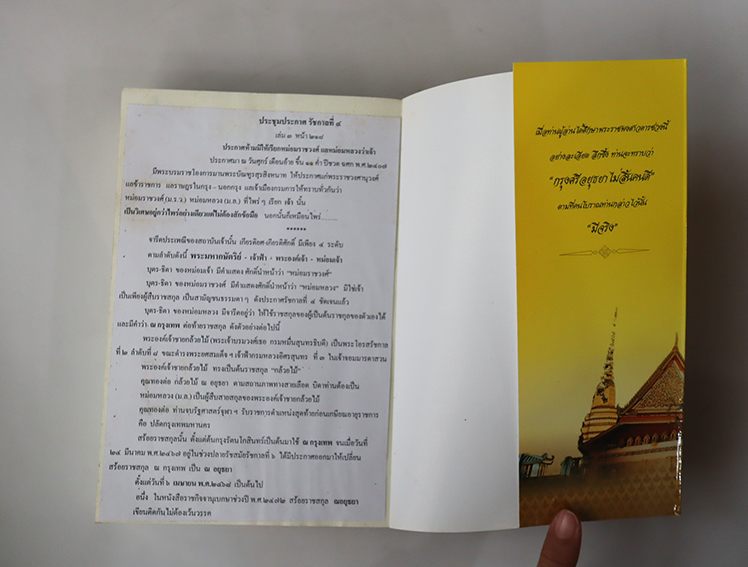 ประชุมประกาศ รัชกาลที่ ๔
เล่ม ๓ หน้า ๒๑๘
ประกาศห้ามมิให้เรียกหม่อมราชวงศ์ แลหม่อมหลวงว่าเจ้า
ประกาศมา ณ วันศุกร์ เดือนอ้าย ขึ้น ๑๑ ค่ำ ปีชวด ฉศก พ.ศ.๒๔๐๗
มีพระบรมราชโองการมานพระบัณฑูรสุรสิงหนาท ให้ประกาศแก่พระราชวงศานุวงศ์
แลข้าราชการ แลราษฎรในกรุง - นอกกรุง แลหัวเมืองกรมการให้ทราบทั่วกันว่า
หม่อมราชวงศ์ (ม.ร.ว.) หม่อมหลวง (ม.ล.) ที่ไพร่ๆ เรียก เจ้า นั้น
เป็นวิเศษอยู่กว่าไพร่อย่างเดียวแต่ไม่ต้องสักข้อมือ นอกนั้นก็เหมือนไพร่......
******
จารีตประเพณีของสถาบันเจ้านั้น เกียรติยศ-เกียรติศักดิ์ มีเพียง ๔ ระดับ
ตามลำดับดังนี้ พระมหากษัตริย์ - เจ้าฟ้า - พระองค์เจ้า - หม่อมเจ้า
บุตร-ธิดา ของหม่อมเจ้า มีคำแสดง ศักดิ์นำหน้าว่า "หม่อมราชวงศ์"
บุตร-ธิดา ของหม่อมราชวงศ์ มีคำแสดงศักดิ์นำหน้าว่า "หม่อมหลวง" มิใช่เจ้า
เป็นเพียงผู้สืบราชสกุล เป็นสามัญชนธรรมดา ๆ ดังประกาศรัชกาลที่ ๔ ชัดเจนแล้ว
บุตร-ธิดา ของหม่อมหลวง มีจารีตอยู่ว่า ให้ใช้ราชสกุลของผู้เป็นต้นราชสกุลของตัวเองได้
และมีคำว่า ณ กรุงเทพ ต่อท้ายราชสกุล ดังตัวอย่างต่อไปนี้
พระองค์เจ้าชายกล้วยไม้ (พระเจ้าบรมวงศ์เธอ กรมหมื่นสุนทรธิบดี) เป็นพระโอรสรัชกาล
ที่ ๒ ลำดับที่ ๘ ขณะดำรงพระยศสมเด็จ ฯ เจ้าฟ้ากรมหลวงอิศรสุนทร ที่ ๓ ในเจ้าจอมมารดาสวน
พระองค์เจ้าชายกล้วยไม้ ทรงเป็นต้นราชสกุล "กล้วยไม้"
คุณทองต่อ กล้วยไม้ ณ อยุธยา ตามสถานภาพทางสายเลือด บิดาท่านต้องเป็น
หม่อมหลวง (ม.ล.) เป็นผู้สืบสายสกุลของพระองค์เจ้าชายกล้วยไม้
คุณทองต่อ ท่านจบรัฐศาสตร์จุฬา ฯ รับราชการตำแหน่งสุดท้ายก่อนเกษียณอายุราชการ
คือ ปลัดกรุงเทพมหานคร
สร้อยราชสกุลนั้น ตั้งแต่ต้นกรุงรัตนโกสินทร์เป็นต้นมาใช้ ณ กรุงเทพ จนเมื่อวันที่
๒๔ มีนาคม พ.ศ.๒๔๖๗ อยู่ในช่วงปลายรัชสมัยรัชกาลที่ ๖ ได้มีประกาศออกมาให้เปลี่ยน
สร้อยราชสกุล ณ กรุงเทพ เป็น ณ อยุธยา
ตั้งแต่วันที่ ๖ เมษายน พ.ศ.๒๔๖๘ เป็นต้นไป
อนึ่ง ในหนังสือราชกิจจานุเบกษาช่วงปี พ.ศ.๒๔๗๒ สร้อยราชสกุล ณอยุธยา
เขียนติดกันไม่ต้องเว้นวรรค
เมื่อท่านผู้อ่านได้ศึกษาพระราชพงศาวดารช่วงนี้
อย่างละเอียด ลึกซึ้ง ท่านจะทราบว่า
"กรุงศรีอยุธยาไม่สิ้นคนดี"
ตามที่คนโบราณท่านกล่าวไว้นั้น
"มีจริง"